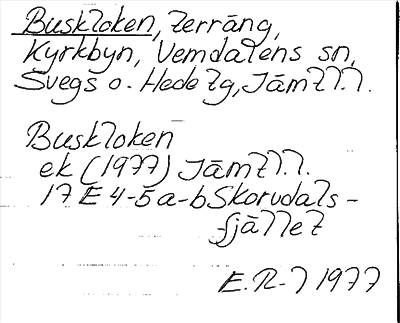 Buskloken, terräng,
Kyrkbyn, Vemdalens sn,
Svegs o. Hede tg, Jämtl.l.
Buskloken
ek (1977) Jämtl.l.
17 E 4-5 a-b Skorvdals-
fjället
E.R-l 1977